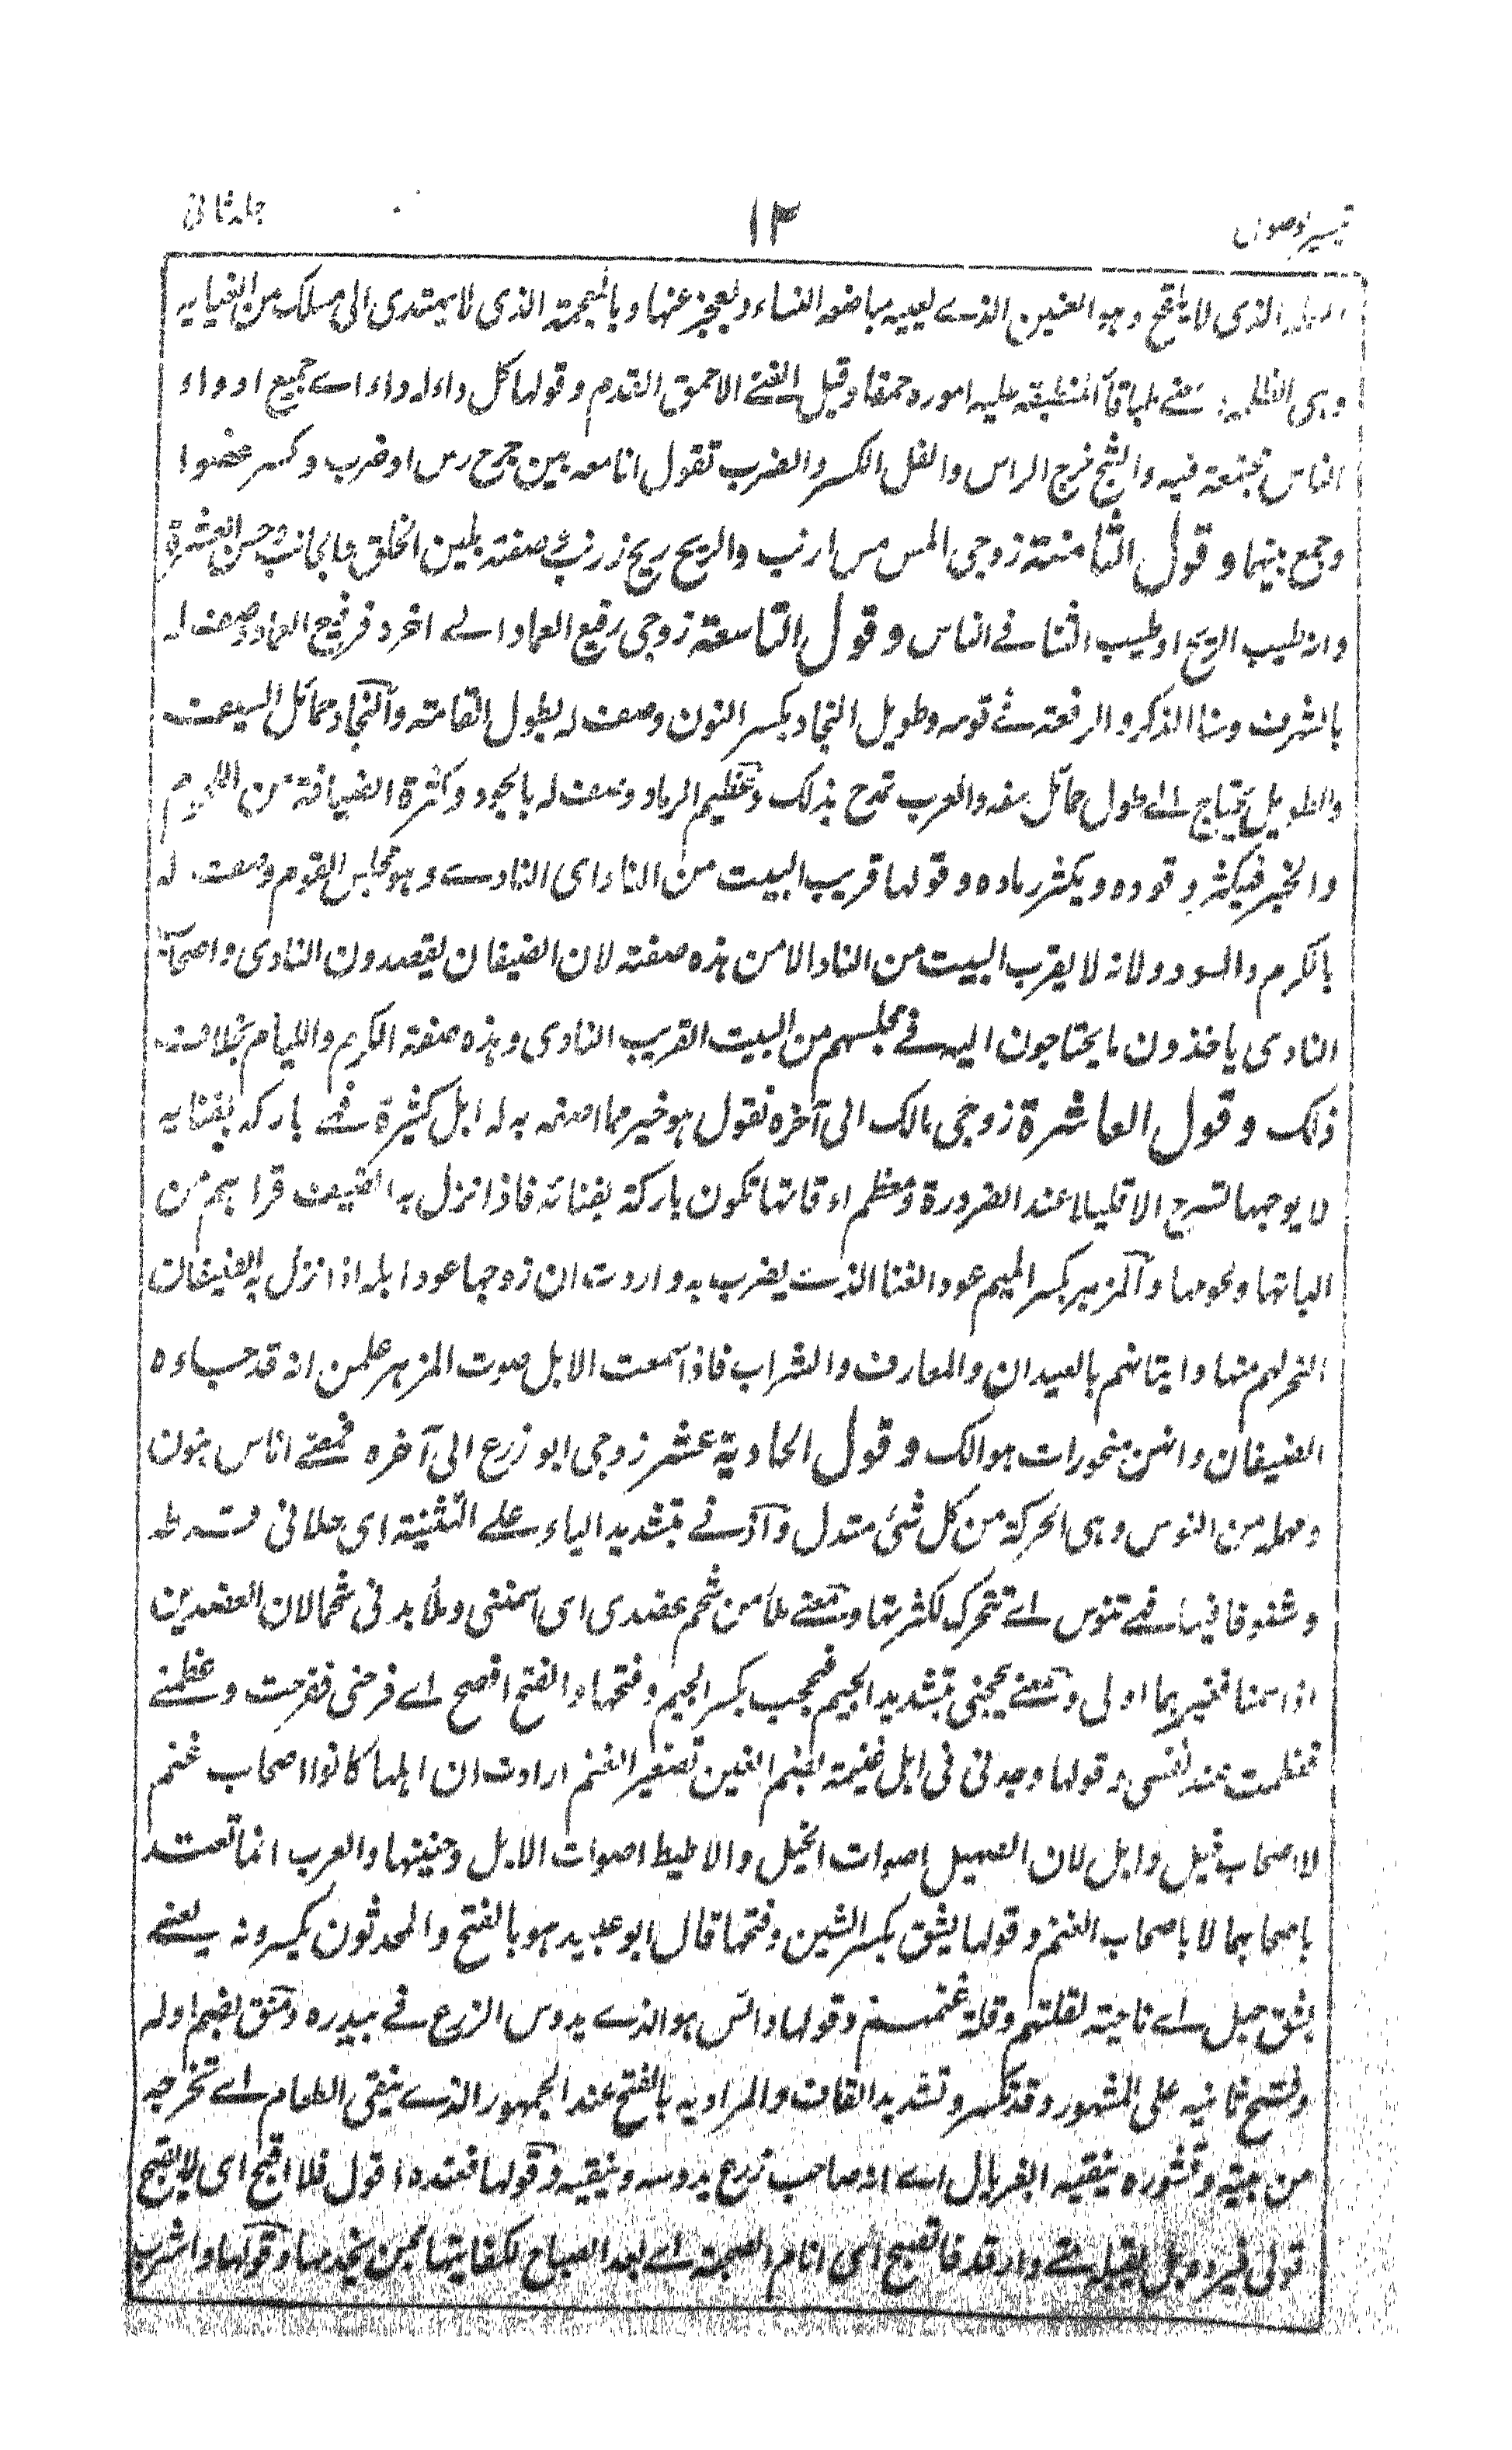 تيسير الوصول ١٣ جلد ثاني
الذي لا يلقح وهو العنين الذے يعييه مباضعة النساء ويعجز عنها وبالمعجمة الذي لا يهتدي الى مسلك من الغياية
وهي الظلمة ومعنے طباقآ المنطبقة عليه اموره حمقا وقيل الغے الاحمق الفدم وقولها كل داء له داء اے جميع ادواء
الناس مجتمعة فيه والشج جرح الراس والفل الكسر والضرب تقول انا معه بين جرح رس او ضرب وكسر عضوا
وجمع بينهما وقول الثامنة زوجي المس مس ارنب والريح ريح زرنب وصفته بلين الخلق والجانب وحسن العشرة
وانه طيب الريح او طيب الثنا فے الناس وقول التاسعة زوجي رفيع العماد الے اخره فرفيع العماد وصف له
بالشرف وسنا الذكر والرفعة فے قومه وطويل النجاد بكسر النون وصف له بطول القامة والنجاد حمائل السيف
والطويل يحتاج الے طول حمائل سيفه والعرب تمدح بذلك وعظيم الرماد وصف له بالجود وكثرة الضيافة من اللحوم
والخبز فيكثر وقوده ويكثر رماده وقولها قريب البيت من الناد اي النادے وهو مجلس القوم وصف له
بالكرم والسودد ولانه لا يقرب البيت من الناد الا من هذه صفته لان الضيفان يقصدون النادي واصحاب
النادي ياخذون ما يحتاجون اليه فے مجلسهم من البيت القريب النادي وهذه صفة الكريم والليام بخلاف
ذلك وقول العاشرة زوجي مالك الى آخره تقول هو خير مما اصفه به له ابل كثيرة فهے باركة بفنايه
لا يوجهها تسرح الا قليلا عند الضرورة ومعظم اوقاتها تكون باركة بفنائه فاذا نزل به الضيف قراهم من
البانها ولحومها والمزهر بكسر الميم عود الغنا الذے يضرب به وارادت ان زوجها عود ابله اذا نزل به الضيفان
النحر لهم منها وايتانهم بالعيدان والمعازف والشراب فاذا سمعت الابل صوت المزهر علمن انه قد جاءه
الضيفان وانهن منحورات هوالك وقول الحادية عشر زوجي ابو زرع الى آخره فمعنے اناس بنون
ومهملة من النوس وهي الحركة من كل شئ متدل وآذنے بتشديد الياء علے التثنية اي حلاني قرطة
وشنوفا فيها فهے تنوس اے تتحرك لكثرتها ومعنے ملأ من شحم عضدي اي اسمنني وملأ بدني شحما لان العضدين
اذا سمنا فغيرهما اولى ومعنے بجحني بتشديد الجيم فبجحت بكسر الجيم وفتحها والفتح افصح اے فرحني ففرحت وعظمنے
فعظمت عند نفسي وقولها وجدني في اهل غنيمة بضم الغين تصغير الغنم ارادت ان اهلها كانوا اصحاب غنم
لا اصحاب خيل وابل لان الصهيل اصوات الخيل والاطيط اصوات الابل وحنينها والعرب انما تعتد
باصحابهما لا باصحاب الغنم وقولها بشق بكسر الشين وفتحها قال ابو عبيد هو بالفتح والمحدثون يكسرونه يعنے
بشق جبل اے ناحيته لقلتهم وقلة غنمهم وقولها دائس هو الذے يدوس الزرع فے بيدره ومنق بضم اوله
وفتح ثانيه على المشهور وقد تكسر وتشديد القاف والمراد به بالفتح عند الجمهور الذے ينقي الطعام اے تخرجه
من تبنه وقشوره ينقيه الغربال اے انه صاحب زرع يدوسه وينقيه وقولها فعنده اقول فلا اقبح اي لا يقبح
قولي فيرده بل يقبله منے وارقد فاتصبح اي انام الصبحة اے بعد الصباح لكفايتها بمن يخدمها وقولها واشرب